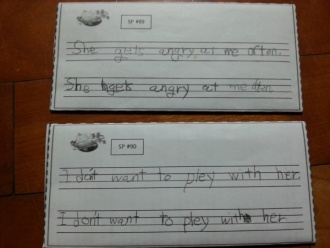 SP #89
She gets angry at me often.
She gets angry at me often
SP #90
I don't want to pley with her.
I don't want to pley with her.